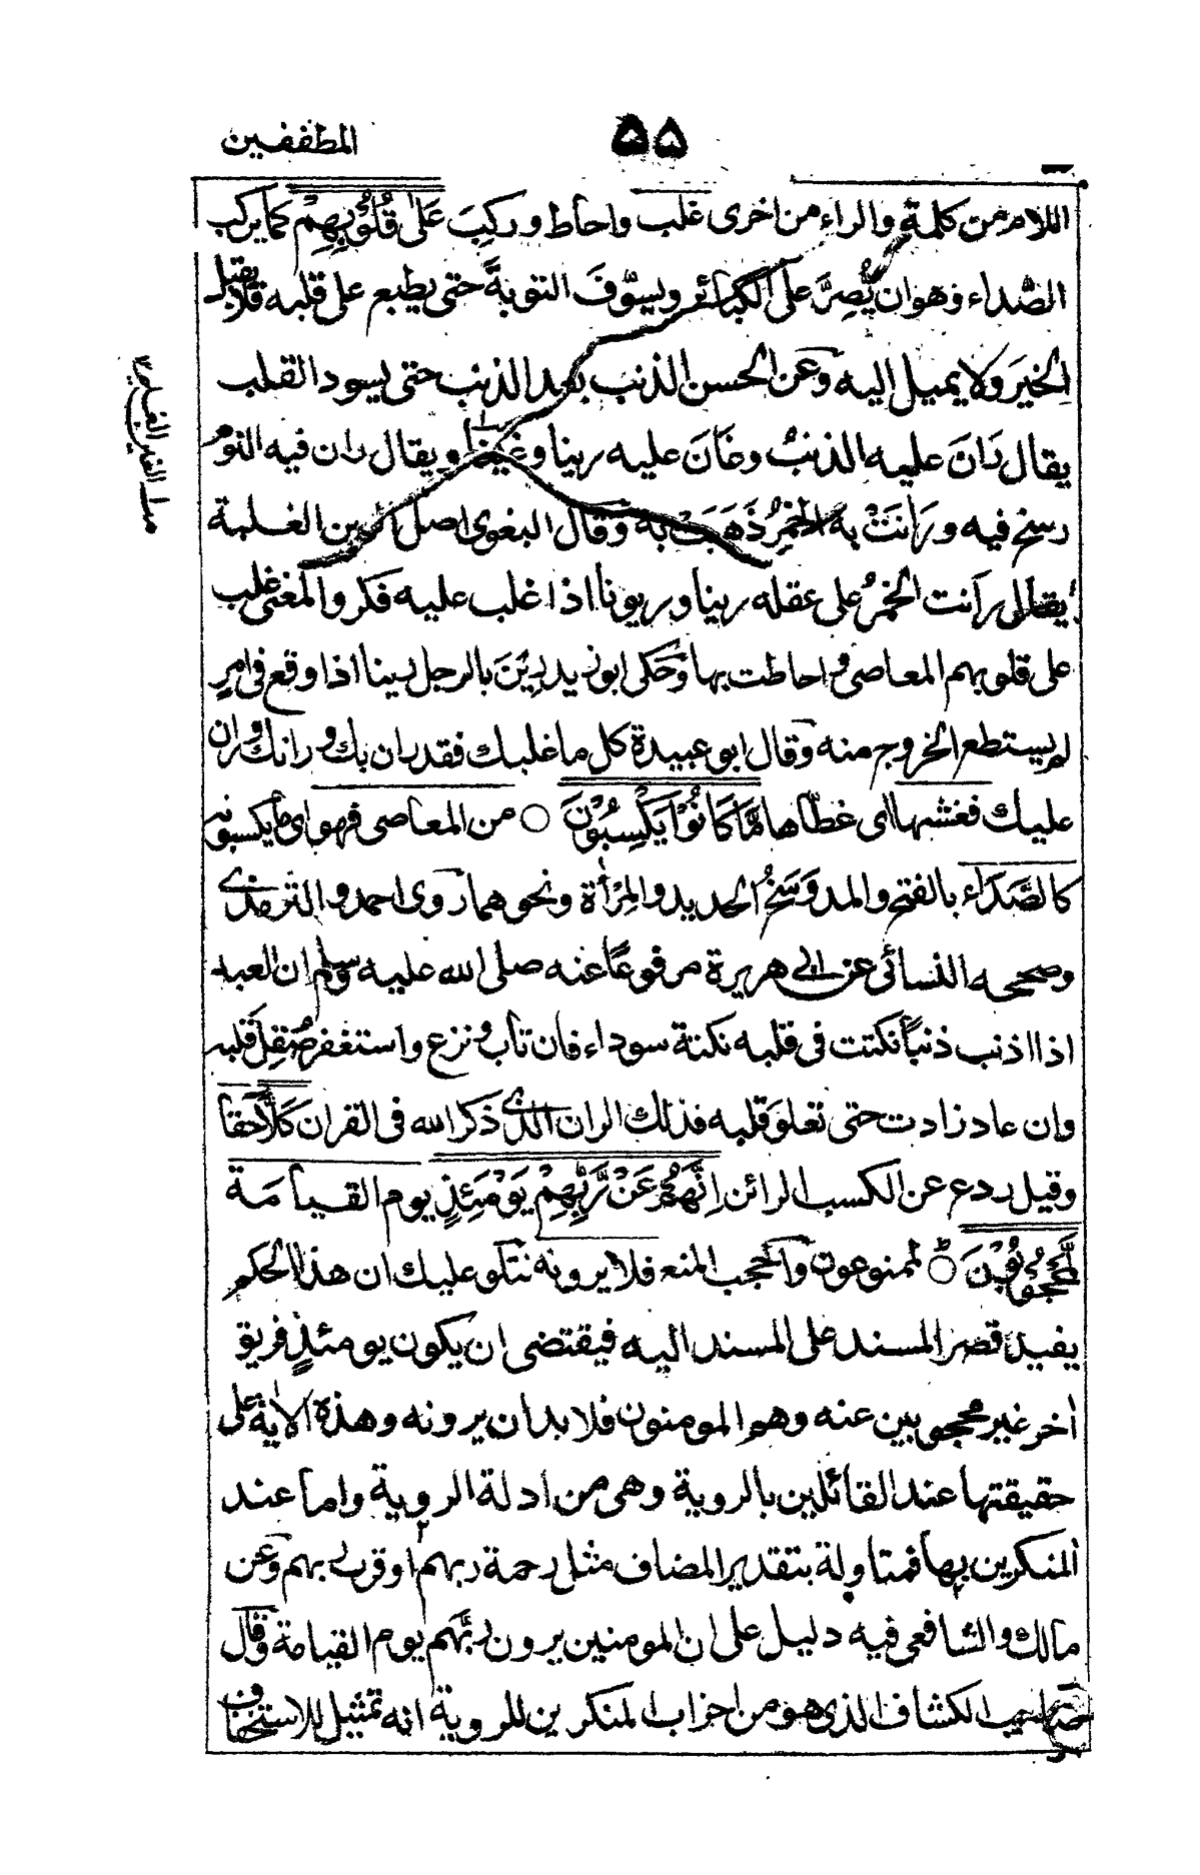 المطففين
۵۵
اللام من كلمة والراء من اخرى غلب واحاط وركِبَ عَلٰى قُلُوْبِهِمْ كما يركب
الصَّداء وهو ان يُصِرَّ على الكبائر ويسوِّفَ التوبةَ حتى يطبع على قلبه فلا يقبل
الخيرَ ولا يميل اليه وعن الحسن الذنب بعد الذنب حتى يسود القلب
يقال رَانَ عليه الذنبُ وغَانَ عليه رينا وغينا ويقال ران فيه النومُ
رسخ فيه ورَانَتْ به الخمرُ ذَهَبَتْ به وقال البغوى اصل الرين الغلبة
يقال رانت الخمرُ على عقله رينا وريونا اذا غلب عليه فكر والمعنى غلب
على قلوبهم المعاصى واحاطت بها وحكى ابو زيد رِيْنَ بالرجل رينا اذا وقع فى امرٍ
لم يستطع الخروج منه وقال ابو عبيدة كل ما غلبك فقد ران بك ورانك وران
عليك فغشيها اى غطّاها مَّا كَانُوْا يَكْسِبُوْنَ ○ من المعاصى فهو اى ما يكسبونه
كالصَّدَاء بالفتح والمد وَسَخُ الحديد والمِرْأة ونحوهما روى احمد والترمذى
وصححه النسائى عن ابى هريرة مرفوعًا عنه صلى الله عليه وسلم ان العبد
اذا اذنب ذنبًا نكتت فى قلبه نكتة سوداء فان تاب ونزع واستغفر صُقِلَ قلبه
وان عاد زادت حتى تعلوَ قلبه فذلك الران الذى ذكر الله فى القران كَلَّآ حقا
وقيل ردع عن الكسب الرائن اِنَّهُمْ عَنْ رَّبِّهِمْ يَوْمَئِذٍ يوم القيامة
لَّمَحْجُوْبُوْنَ ○ لممنوعون والحجب المنع فلا يرونه نتلو عليك ان هذا الحكم
يفيد قصر المسند على المسند اليه فيقتضى ان يكون يومئذٍ فريق
اٰخر غير محجوبين عنه وهو المومنون فلا بد ان يرونه وهذه الاٰية على
حقيقتها عند القائلين بالروية وهى من ادلة الروية واما عند
المنكرين بها فمتاولة بتقدير المضاف مثل رحمة ربهم او قرب ربهم وعن
مالك والشافعى فيه دليل على ان المومنين يرون ربَّهم يوم القيامة وقال
صاحب الكشاف الذى هو من احزاب المنكرين للروية انه تمثيل للاستخفاف